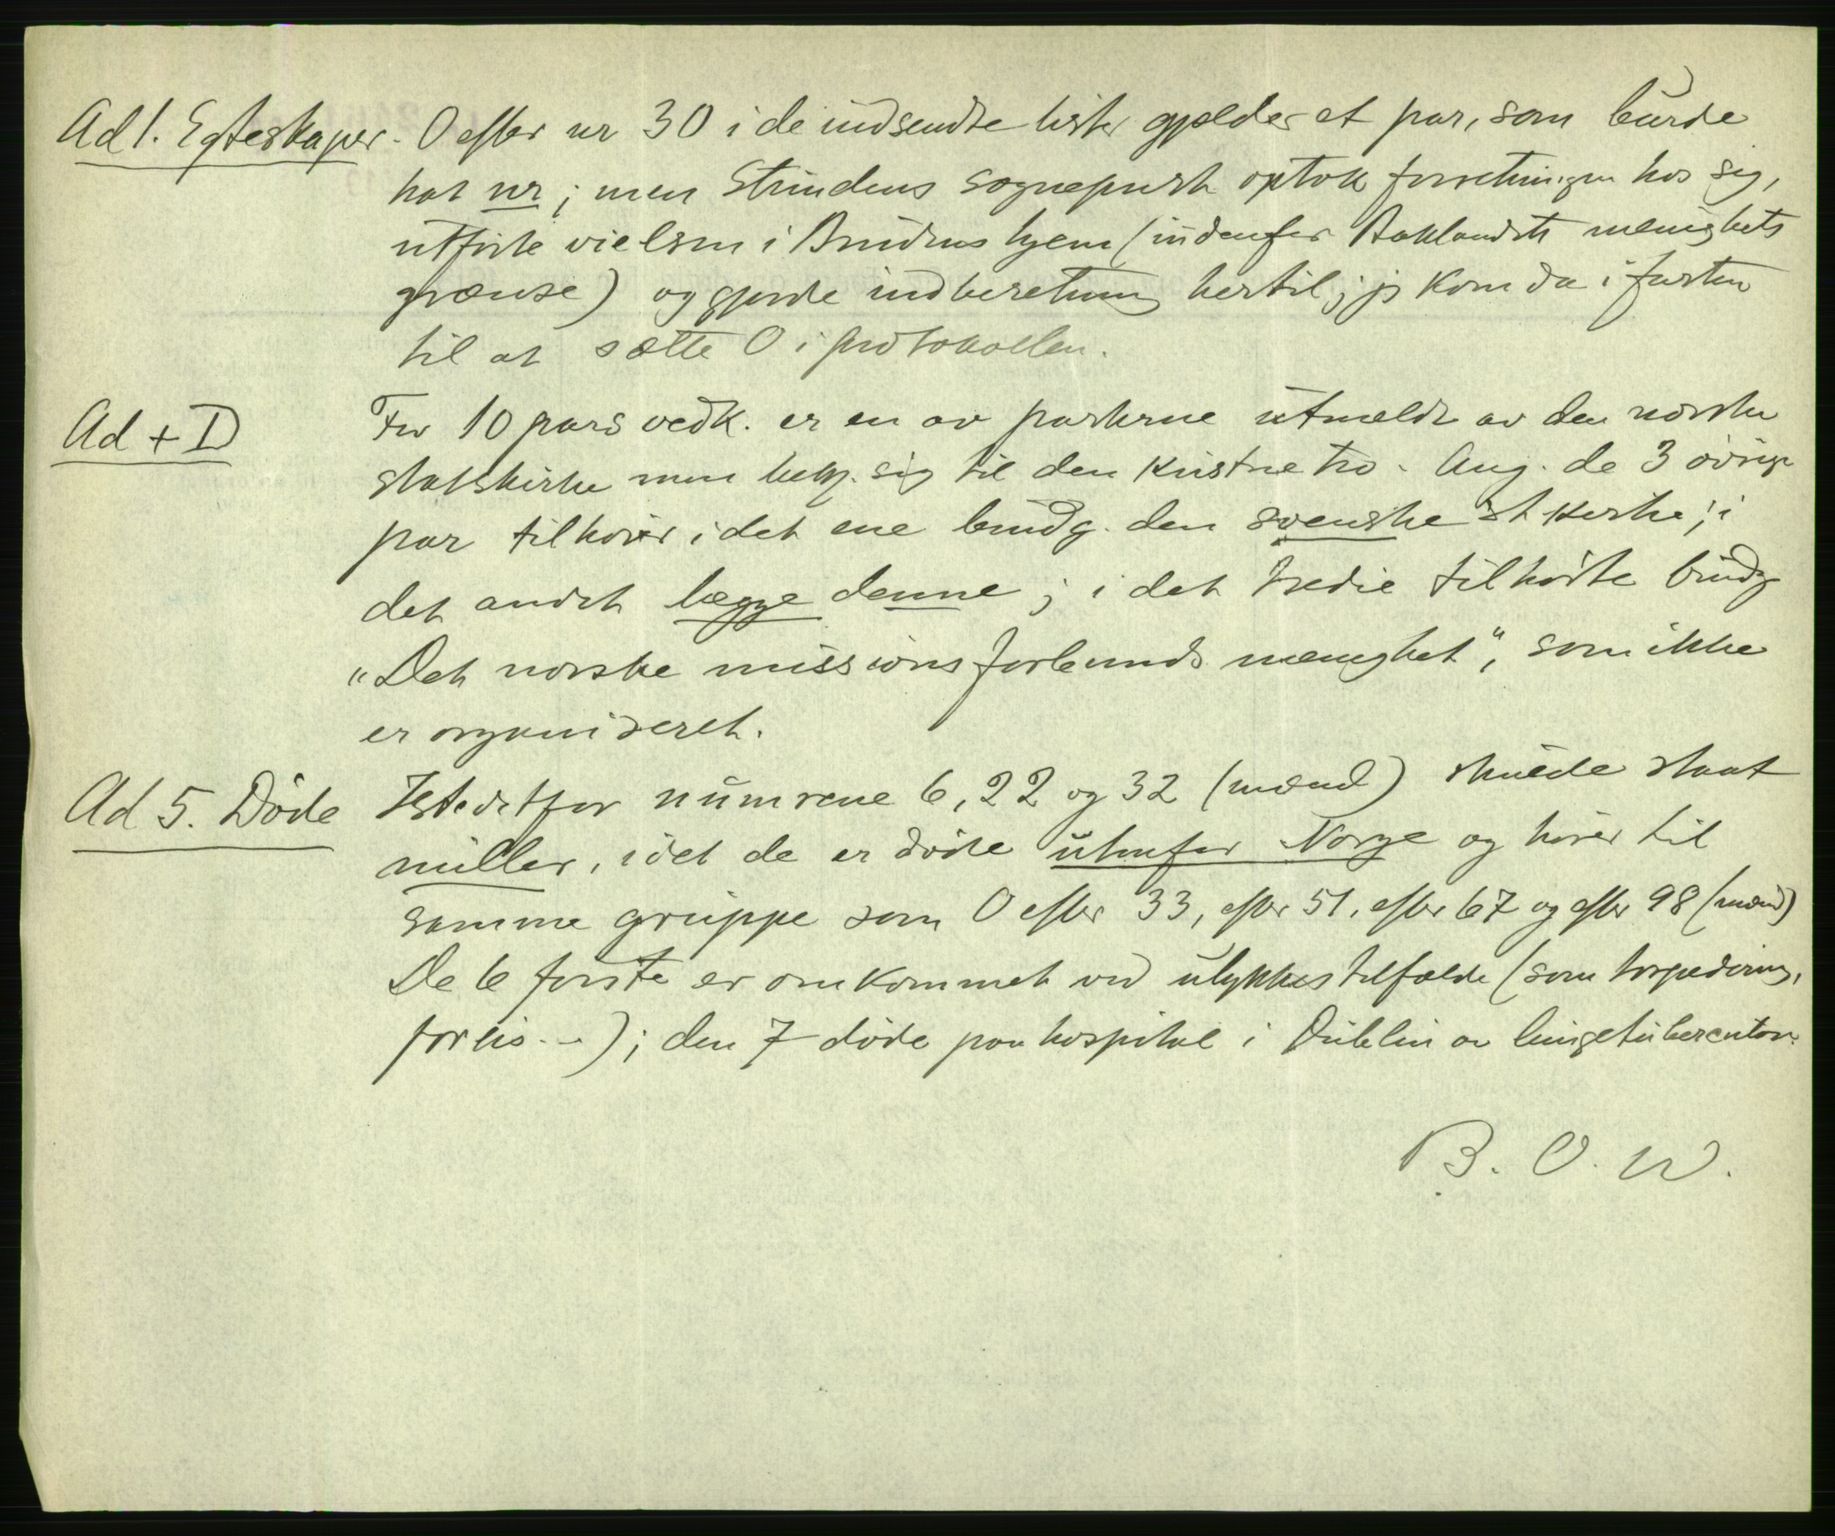 Ad 1. Egteskaper. O efter nr 30 i de indsendte lister gjælder et par, som burde
hat nr; men Strindens sogneprest optok forretningen hos sig,
utførte vielsen i Brudens hjem (indenfor Baklandets menighets
grænse) og gjorde indberetning hertil; jeg kom da i farten
til at sætte O i protokollen.
Ad + D For 10 pars vedk. er en av parterne utmeldt av den norske
statskirke men bekj. sig til den kristne tro. Ang. de 3 øvrige
par tilhører i det ene brudg. den svenske st kirke; i
det andet begge denne; i det tredie tilhørte brudg
"Det norske missionsforbunds menighet", som ikke
er organiseret.
Ad 5. Døde Istedetfor numrene 6, 22 og 32 (mænd) skulde staat
nuller, idet de er døde utenfor Norge og hører til
samme gruppe som O efter 33, efter 51, efter 67 og efter 98 (mænd)
De 6 første er omkommet ved ulykkestilfælde (som torpedering,
forlis - -); den 7 døde paa hospital i Dublin av lungetuberculose.
B. O. W.